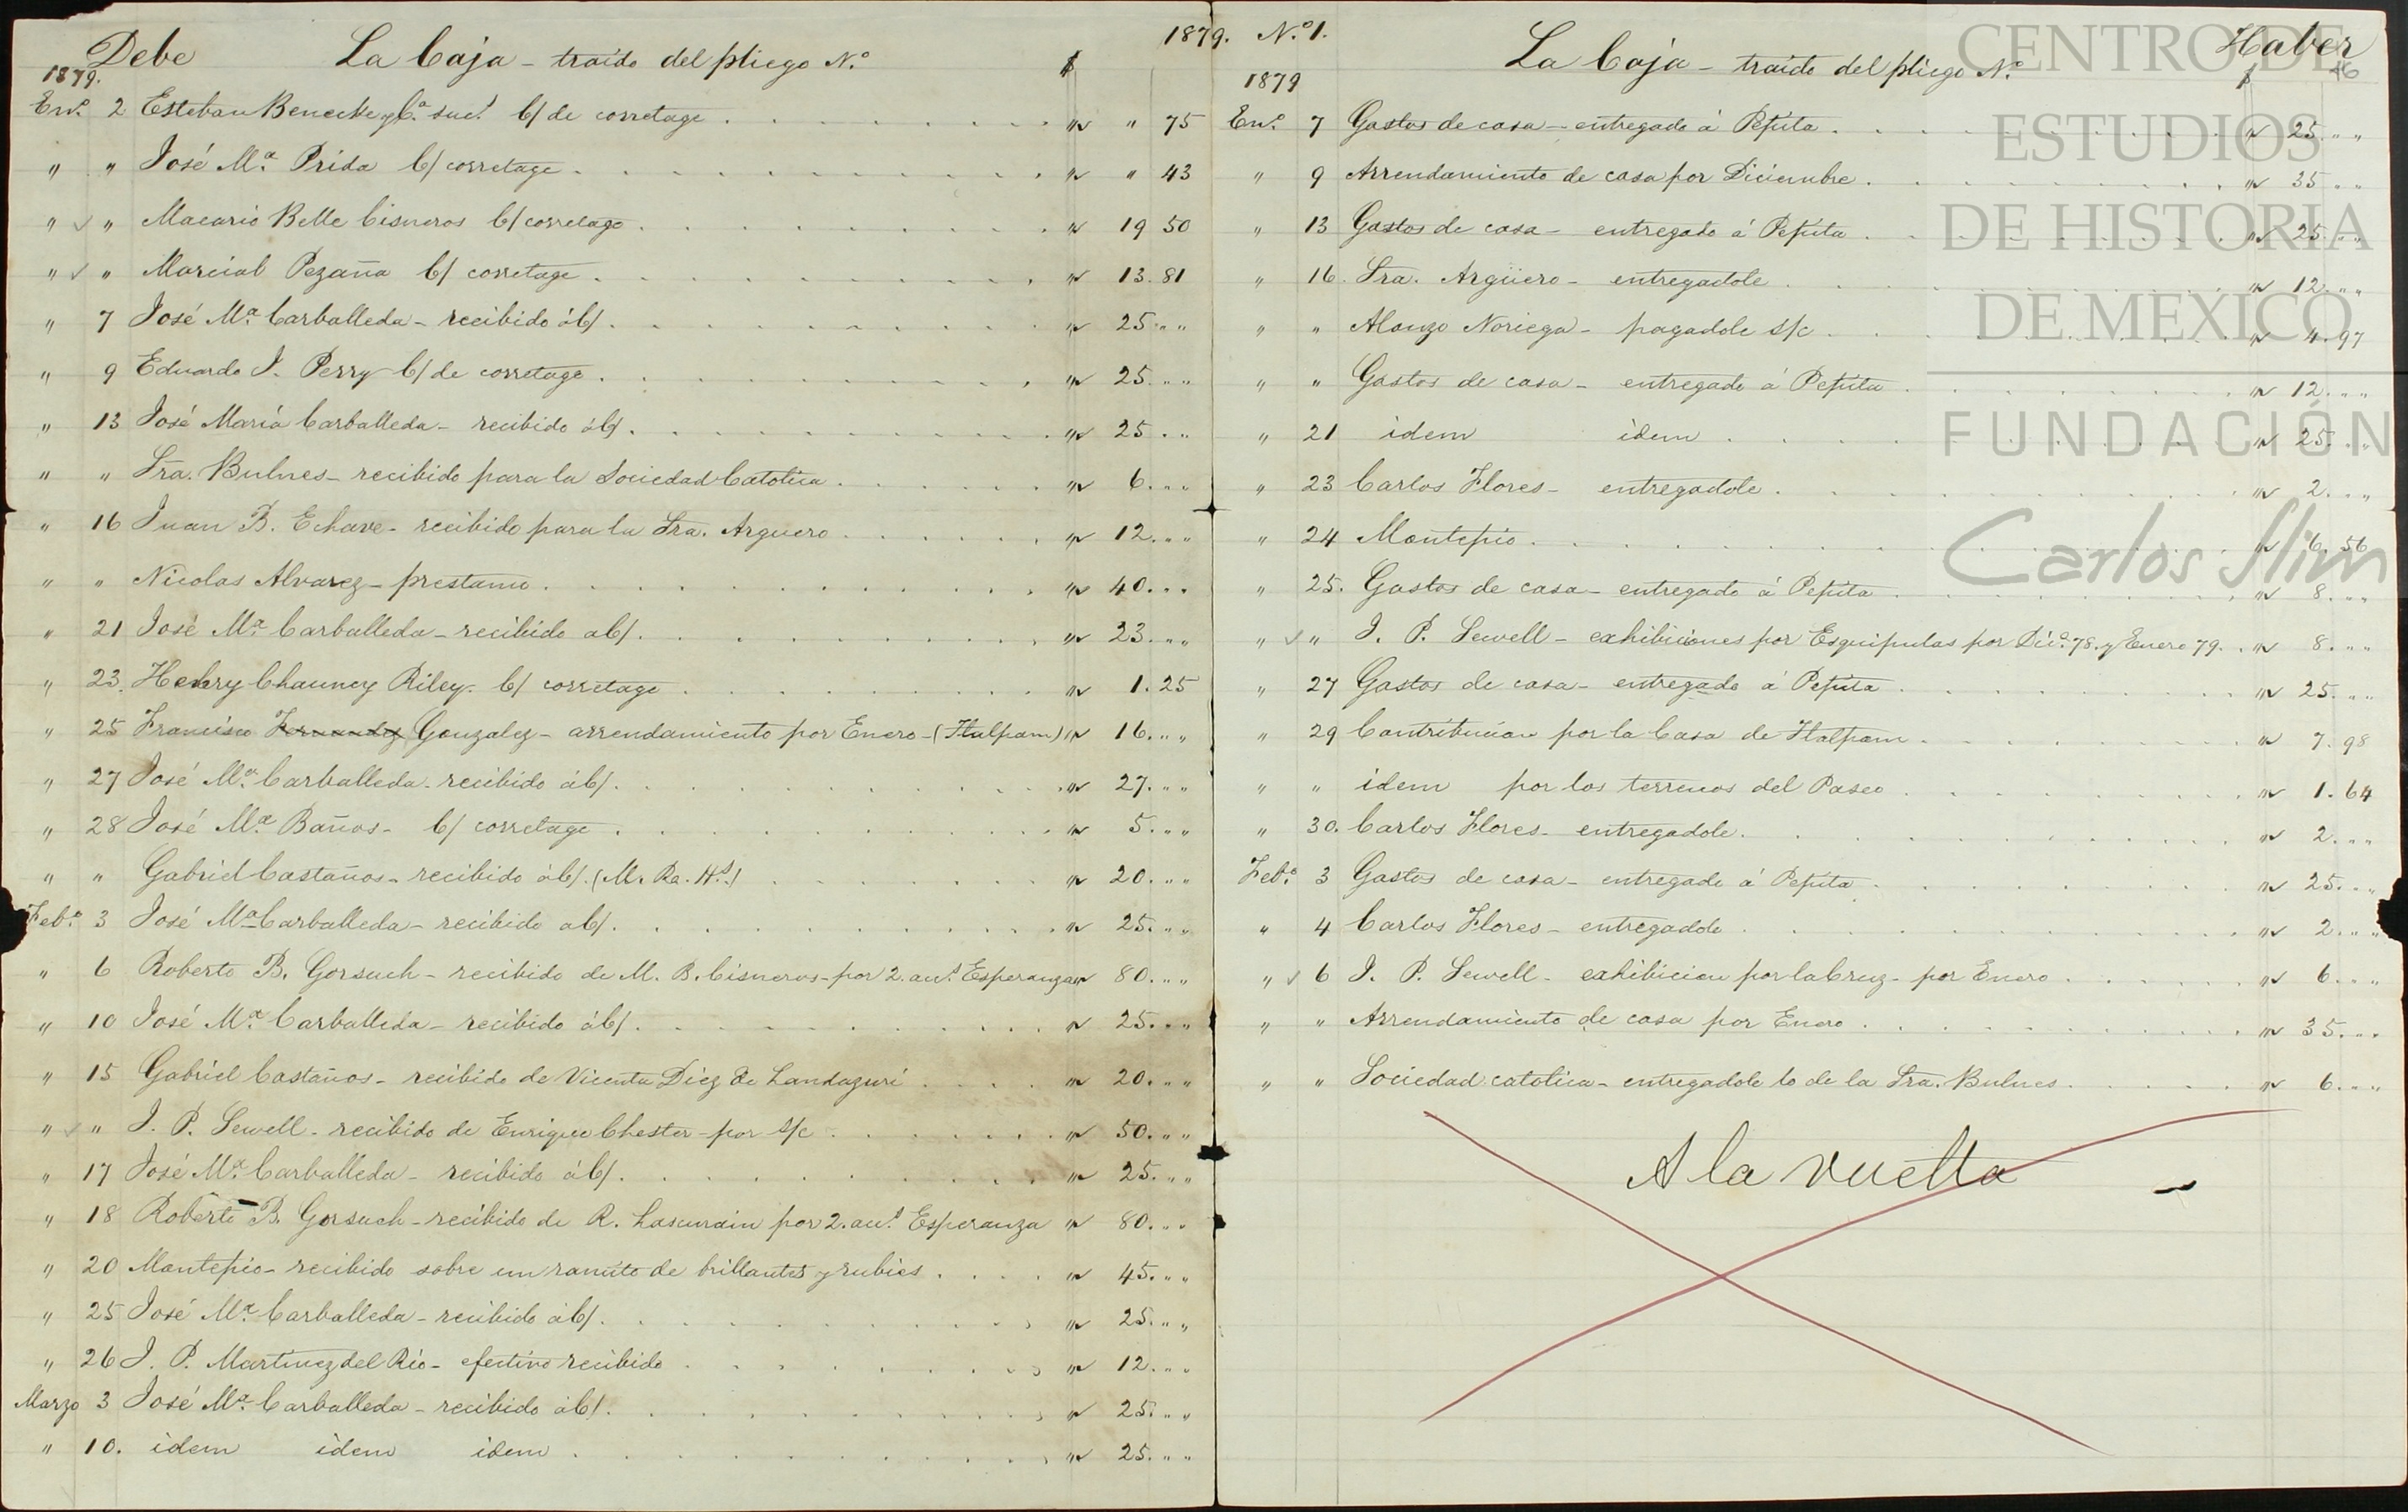 1879. N.º 1.
Debe La Caja - traido del pliego N.º $
1879.
En.º 2 Esteban Benecke y C.ª suc.s C/ de corretage " " 75
" " José M.ª Prida C/ corretage " " 43
" " Macario Belle Cisneros C/ corretage " 19 50
" " Marcial Pezaña C/ corretage " 13. 81
" 7 José M.ª Carballeda - recibido á C/ " 25. " "
" 9 Eduardo J. Perry C/ de corretage " 25. " "
" 13 José María Carballeda - recibido á C/ " 25. " "
" " Sra. Bulnes - recibido para la Sociedad Catolica " 6. " "
" 16 Juan B. Echave - recibido para la Sra. Arguero " 12. " "
" " Nicolas Alvarez - prestamo " 40. " "
" 21 José M.ª Carballeda - recibido a C/ " 23. " "
" 23. Henry Chauncy Riley. C/ corretage " 1. 25
" 25 Francisco Fernandez Gonzalez - arrendamiento por Enero - (Tlalpam) " 16. " "
" 27 José M.ª Carballeda - recibido á C/ " 27. " "
" 28 José M.ª Baños - C/ corretage " 5. " "
" " Gabriel Castaños - recibido á C/. (M. Ra. H.s) " 20. " "
Feb.º 3 José M.ª Carballeda - recibido a C/ " 25. " "
" 6 Roberto B. Gorsuch - recibido de M. B. Cisneros - por 2. au.s Esperanza " 80. " "
" 10 José M.ª Carballeda - recibido á C/ " 25. " "
" 15 Gabriel Castaños - recibido de Vicenta Diez de Landazuri " 20. " "
" " J. P. Sewell - recibido de Enrique Chester - por s/c " 50. " "
" 17 José M.ª Carballeda - recibido á C/ " 25. " "
" 18 Roberto B. Gorsuch - recibido de R. Lascurain por 2. au.s Esperanza " 80. " "
" 20 Montepio - recibido sobre un ramito de brillantes y rubies " 45. " "
" 25 José M.ª Carballeda - recibido á C/ " 25. " "
" 26 J. P. Martinez del Rio - efectivo recibido " 12. " "
Marzo 3 José M.ª Carballeda - recibido á C/ " 25. " "
" 10. idem idem idem " 25. " "
La Caja - traido del pliego N.º Haber
46
1879 $
En.º 7 Gastos de casa - entregado á Pepita " 25. " "
" 9 Arrendamiento de casa por Diciembre " 35 " "
" 13 Gastos de casa - entregado á Pepita " 25. " "
" 16. Sra. Argüero - entregadole " 12. " "
" " Alonzo Noriega - pagadole s/c " 4. 97
" " Gastos de casa - entregado á Pepita " 12. " "
" 21 idem idem " 25. " "
" 23 Carlos Flores - entregadole " 2. " "
" 24 Montepio " 6. 56
" 25. Gastos de casa - entregado á Pepita " 8. " "
" " J. P. Sewell - exhibiciones por Esquipulas por Dic.e 78. y Enero 79. " 8. " "
" 27 Gastos de casa - entregado á Pepita " 25. " "
" 29 Contribucion por la Casa de Tlalpam " 7. 98
" " idem por los terrenos del Paseo " 1. 64
" 30. Carlos Flores - entregadole " 2. " "
Feb.º 3 Gastos de casa - entregado á Pepita " 25. " "
" 4 Carlos Flores - entregadole " 2. " "
" 6 J. P. Sewell - exhibicion por la Cruz - por Enero " 6. " "
" " Arrendamiento de casa por Enero " 35. " "
" " Sociedad catolica - entregadole lo de la Sra. Bulnes " 6. " "
A la vuelta
CENTRO DE
ESTUDIOS
DE HISTORIA
DE MEXICO
FUNDACIÓN
Carlos Slim